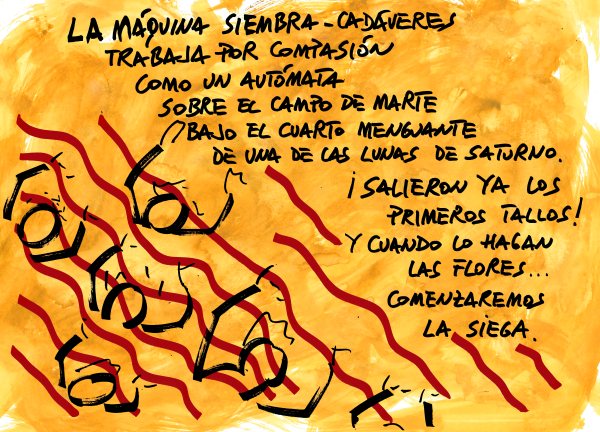 LA MÁQUINA SIEMBRA-CADÁVERES
TRABAJA POR COMPASIÓN
COMO UN AUTÓMATA
SOBRE EL CAMPO DE MARTE
BAJO EL CUARTO MENGUANTE
DE UNA DE LAS LUNAS DE SATURNO.
¡SALIERON YA LOS
PRIMEROS TALLOS!
Y CUANDO LO HAGAN
LAS FLORES...
COMENZAREMOS
LA SIEGA.